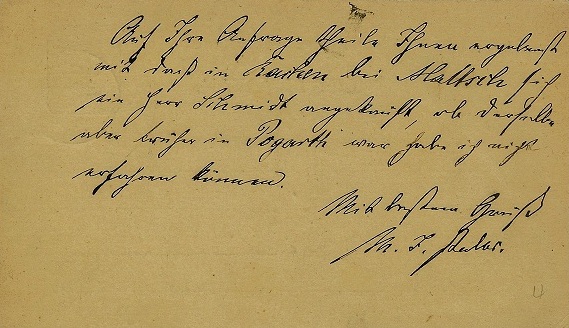 Auf Ihre Anfrage theile Ihnen ergebenst
mit daß in bei Maltsch sich
ein Herr Schmidt angekauft, ob derselbe
aber früher in Pogarth war habe ich nicht
erfahren können.
Mit bestem Gruß